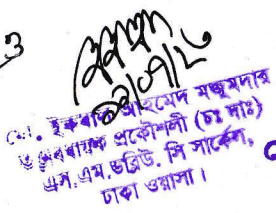 ৩
মো. ইকবাল আহমেদ মজুমদার
তত্ত্বাবধায়ক প্রকৌশলী (চঃ দাঃ)
এস.এম.ডব্লিউ. সি সার্কেল,
ঢাকা ওয়াসা।